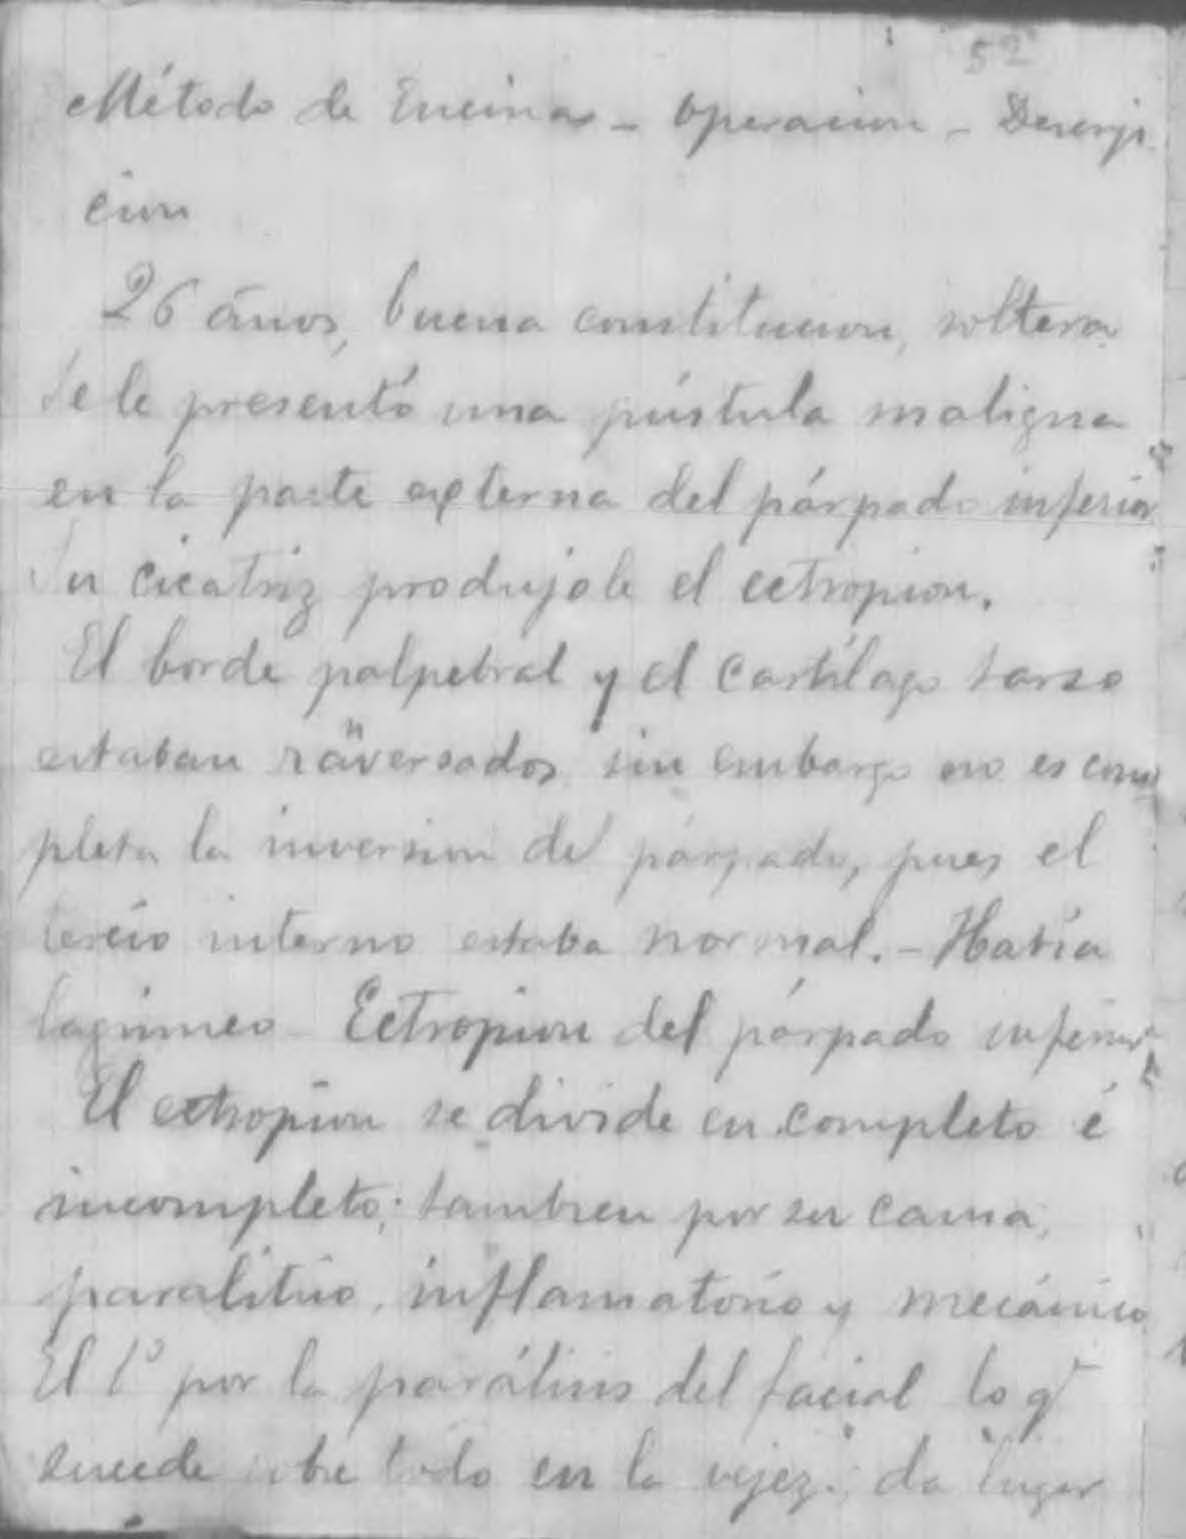 52
Método de Encinas - Operacion - Descrip
cion
26 años, buena constitucion, soltera
Se le presentó una pústula maligna
en la parte externa del párpado inferior
Su cicatriz produjole el ectropion.
El borde palpebral y el cartílago tarso
estaban ranversados sin embargo no es com
pleta la inversion del párpado, pues el
tercio interno estaba normal. - Habia
lagrimeo - Ectropion del párpado inferior
El ectropion se divide en completo é
incompleto; tambien por su causa,
paralitico, inflamatorio y mecánico
El 1º por la parálisis del facial lo q
sucede sobre todo en la vejez; da lugar